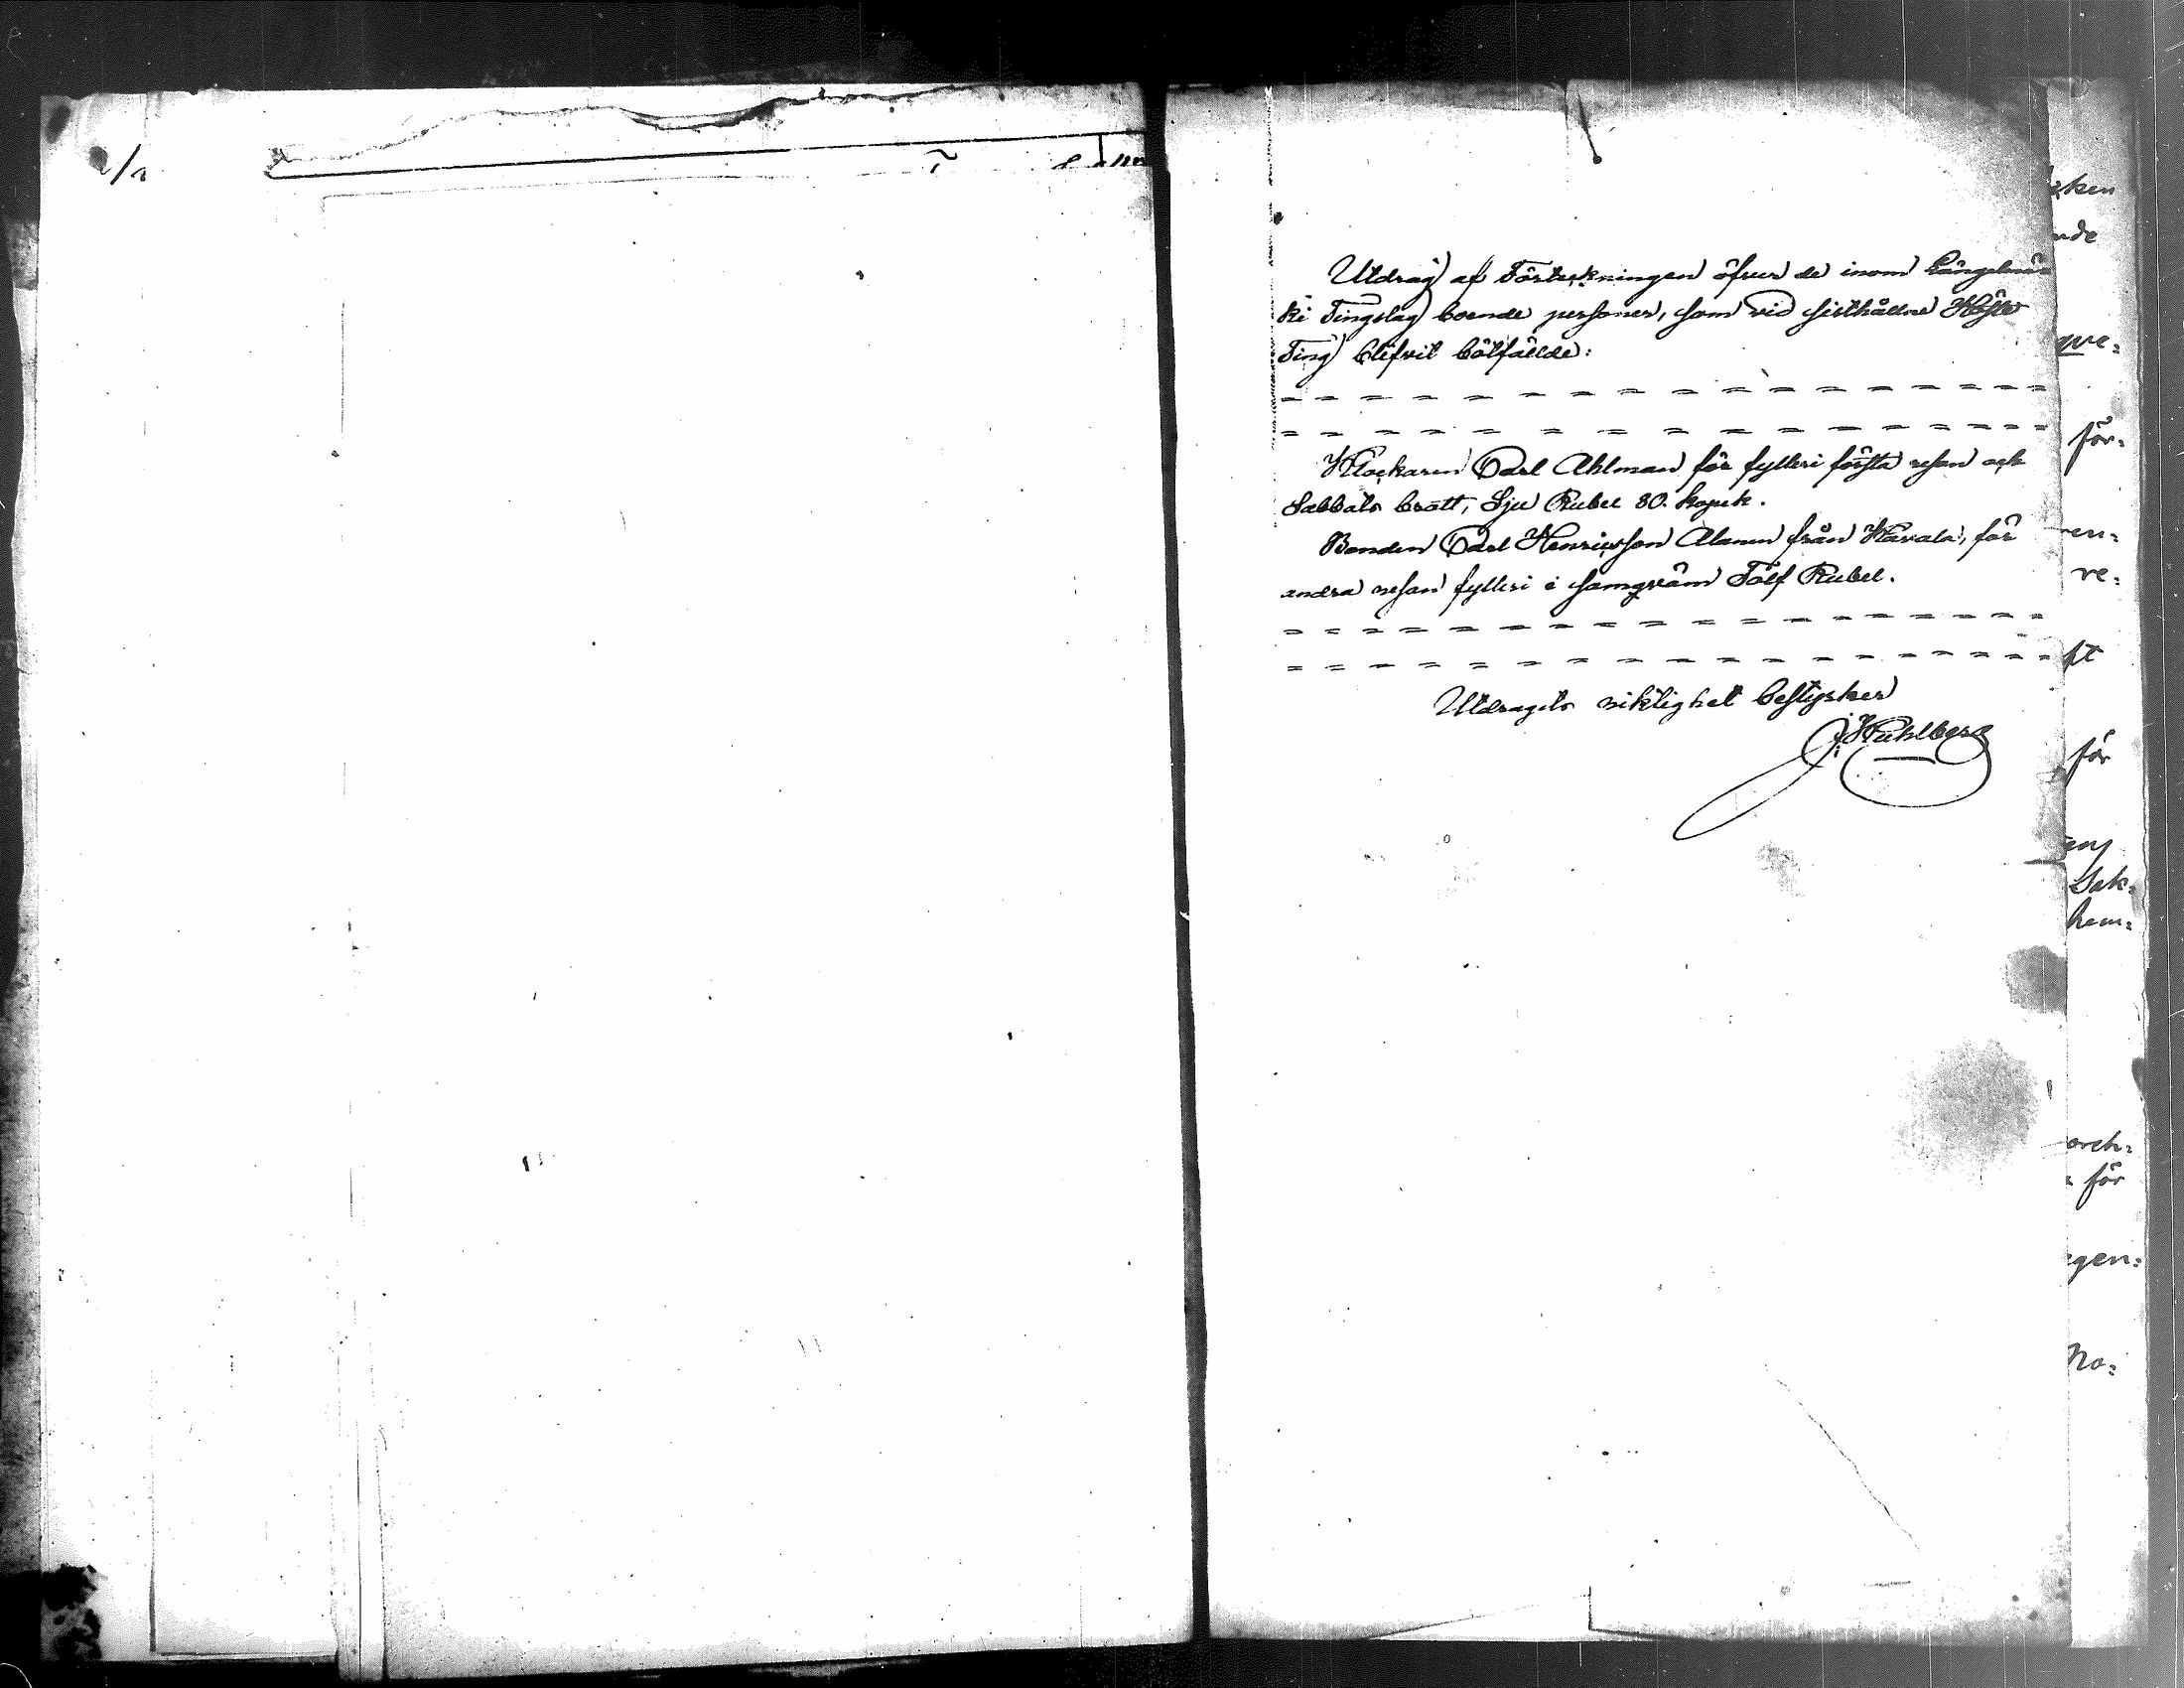 Utdrag af Förteckningen öfver de inom Längelmä-
ki Tingslag boende personer, som vid sisthållne Höste
Ting blifvit bötfällde:
Klockaren Carl Ahlman för fylleri första resan och
Sabbats brott, Sju Rubel 80. kopek.
Bonden Carl Henricsson Alanen från Wärala, för
andra resan fylleri i samqväm Tolf Rubel.
Utdragets riktighet bestyrker
ken
nde
qve=
för=
en=
re=
pt
för
Sak=
hem=
för
gen=
No=